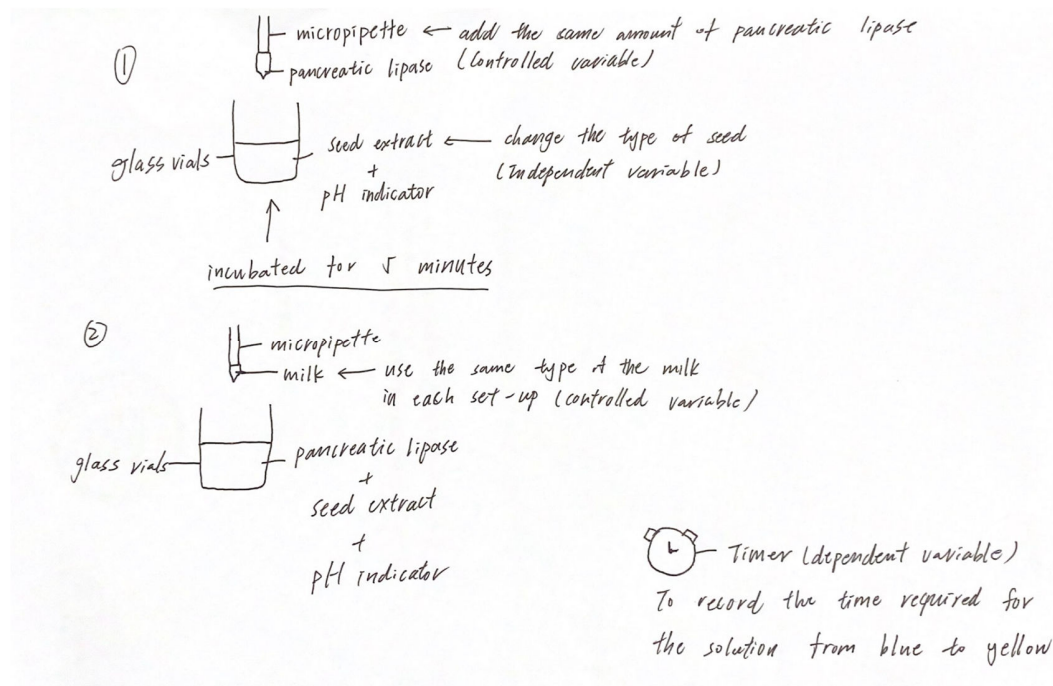 ①
micropipette ← add the same amount of pancreatic lipase
pancreatic lipase (Controlled variable)
glass vials
seed extract ← change the type of seed
+ (Independent variable)
pH indicator
incubated for 5 minutes
②
micropipette
milk ← use the same type of the milk
in each set-up (controlled variable)
glass vials
pancreatic lipase
+
seed extract
+
pH indicator
Timer (dependent variable)
To record the time required for
the solution from blue to yellow